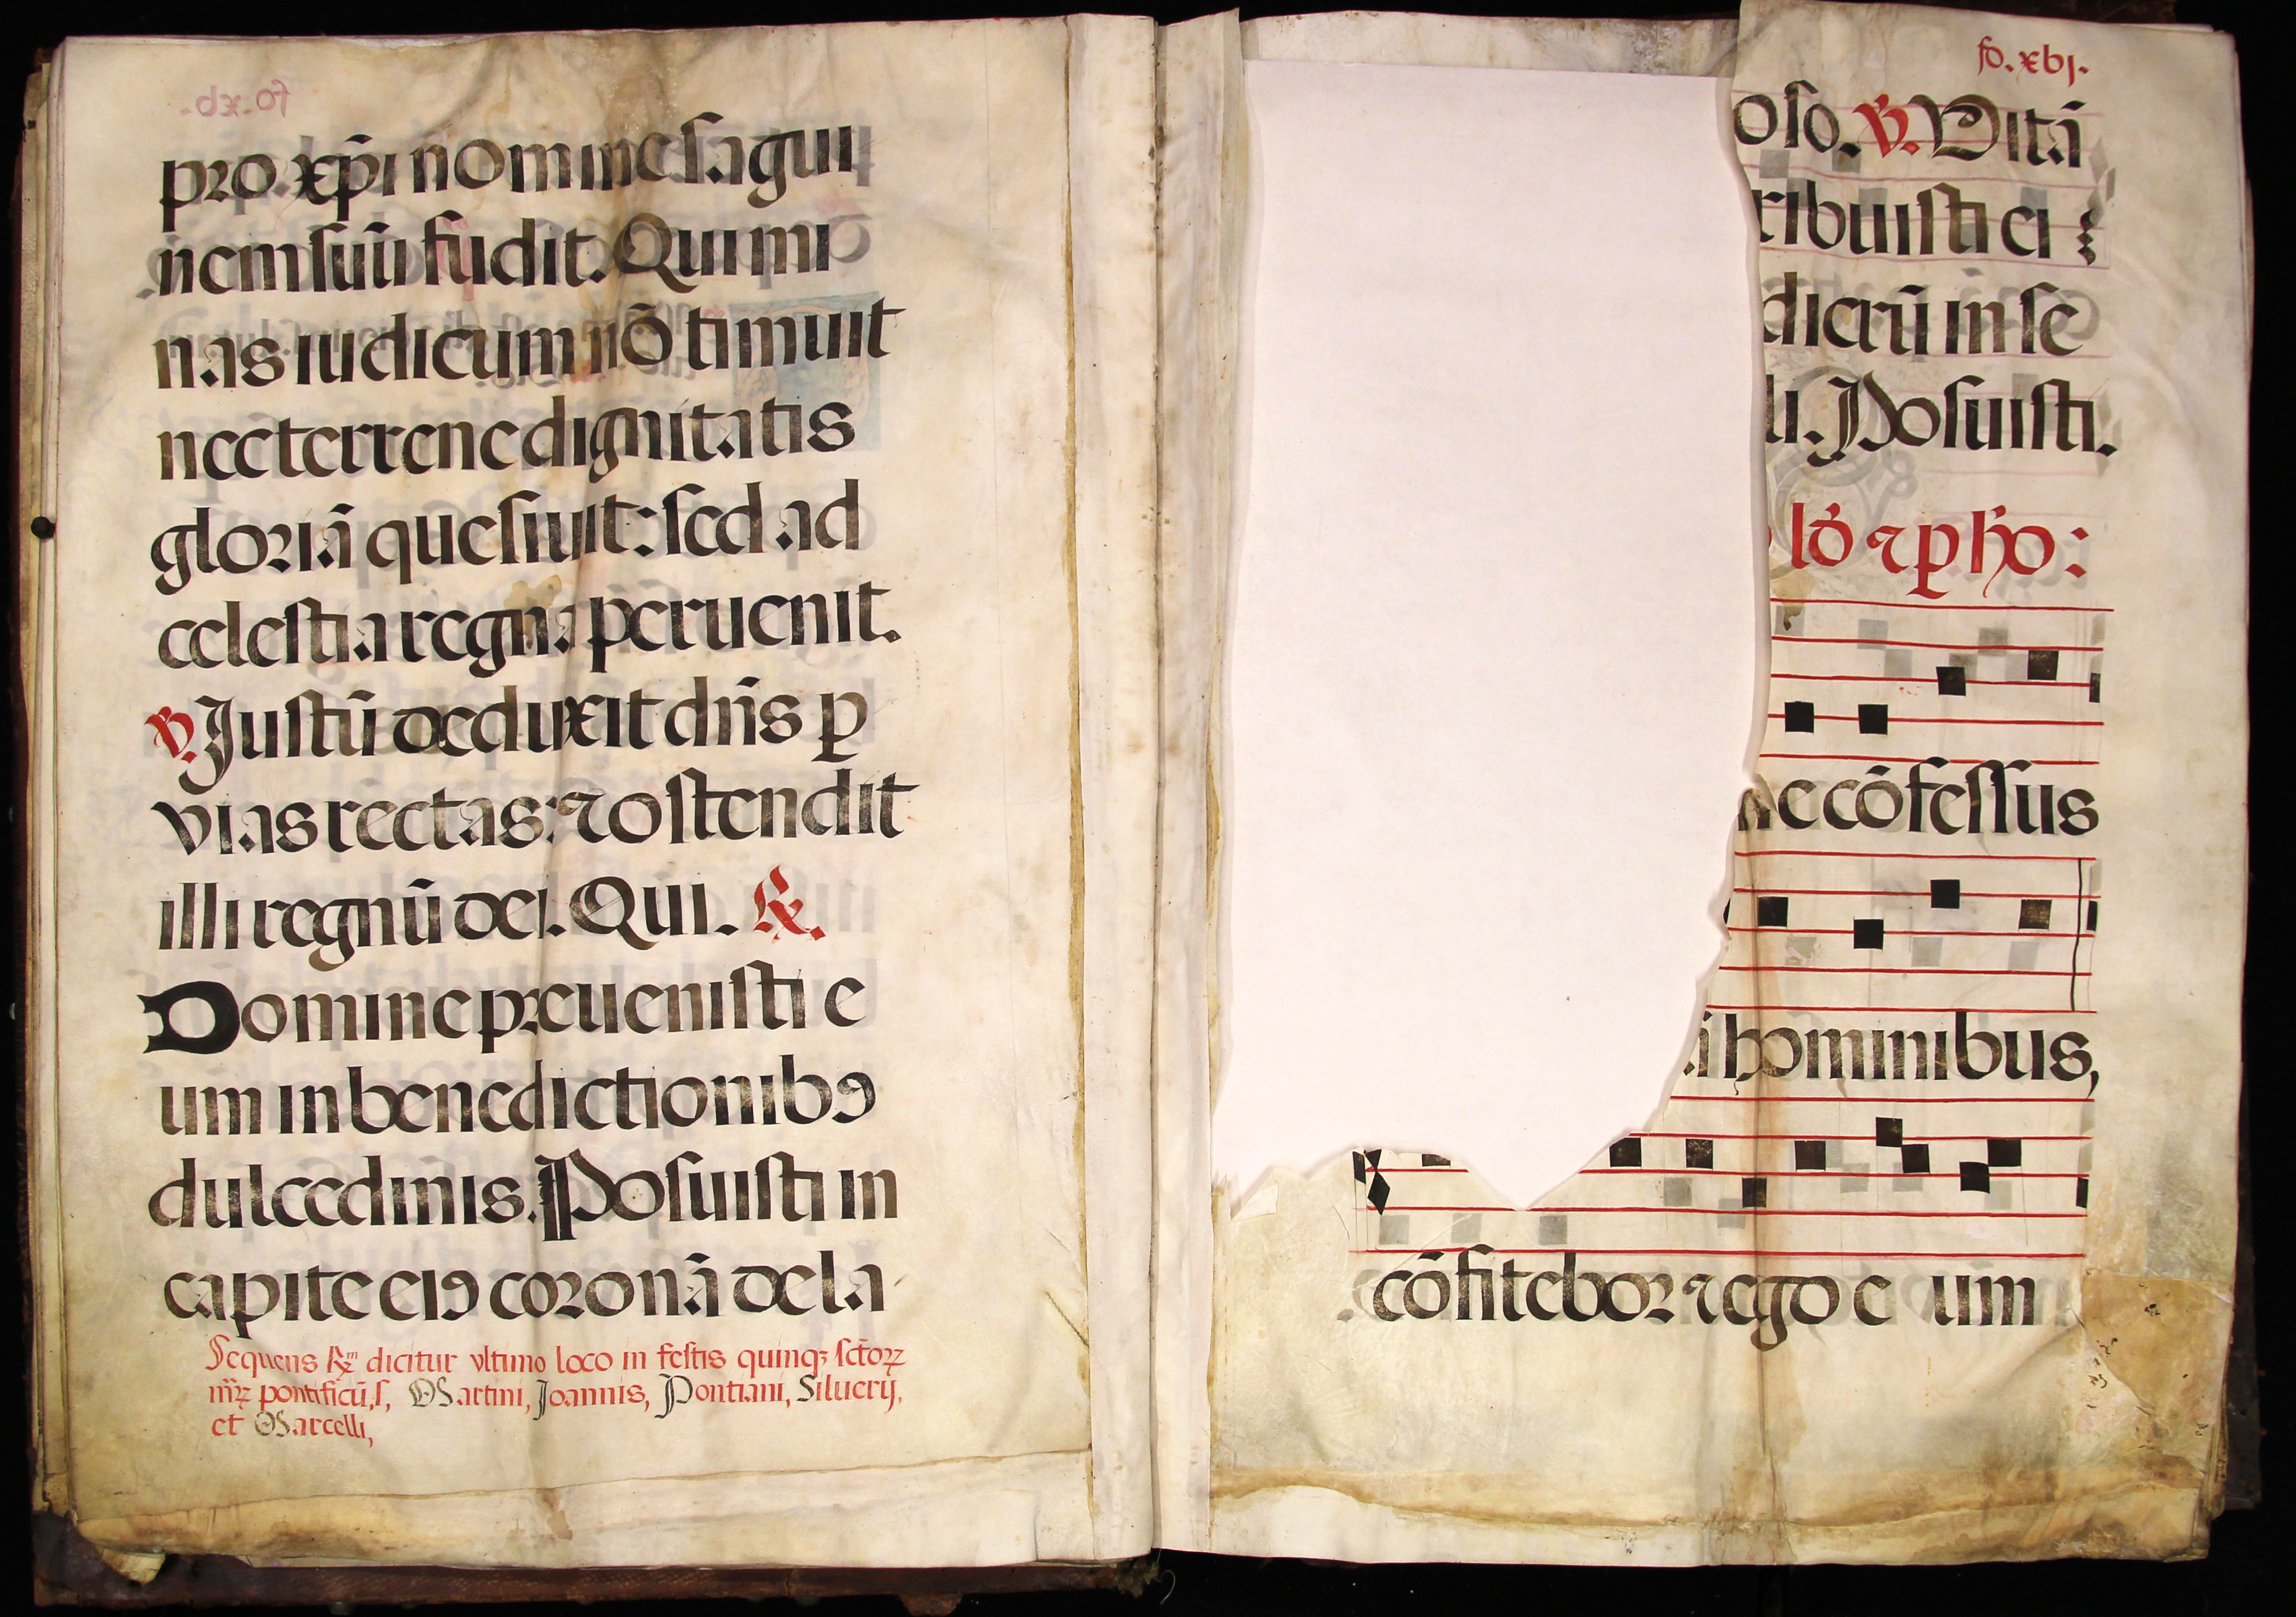 pro xp̄i nomine sāgui
nem suū fudit. Qui mi
nas iudicum nō timuit
nec terrene dignitatis
gloriā quesiuit: sed ad
celestia regna peruenit.
℣. Justū deduxit dn̄s ꝑ
vias rectas: ⁊ ostendit
illi regnū dei. Qui. ℟.
Domine preuenisti e
um in benedictionibꝰ
dulcedinis. Posuisti in
capite eiꝰ coronā de la
Sequens ℟m dicitur vltimo loco in festis quinqꝫ sctōꝝ
mr̄ꝝ pontificū, s, Martini, Joannis, Pontiani, Siluerij,
et Marcelli,
fo. xbj.
oso. ℣. Vitā
ribuisti ei
dierū in se
li. Posuisti.
lō ⁊ ꝑ ħo:
e cōfessus
hominibus,
cōfitebor ⁊ ego e um